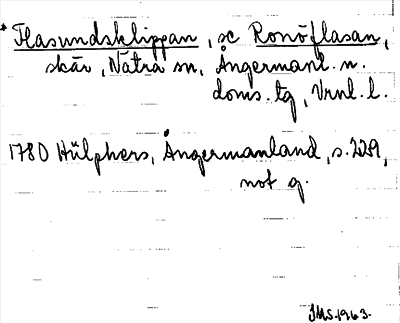 * Flasundsklippan, se Ronöflasan,
skär, Nätra sn, Ångermanl. n.
doms. tg, Vrnl. l.
1780 Hülphers, Ångermanland, s. 229,
not q.
IMS. 1963.